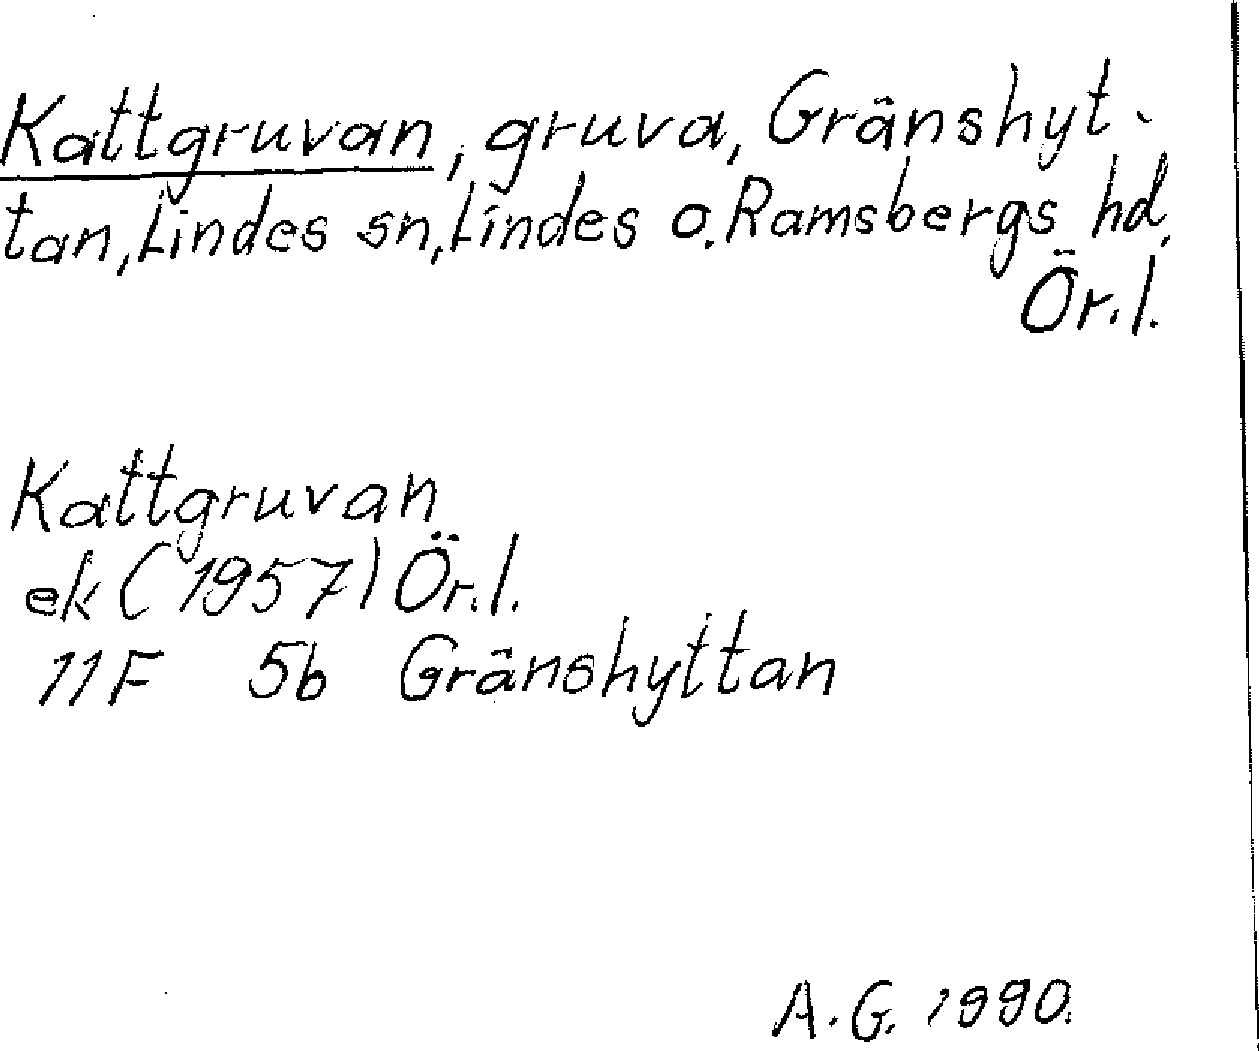 Kattgruvan, gruva, Gränshyt-
tan, Lindes sn, Lindes o. Ramsbergs hd,
Ör.l.
Kattgruvan
ek (1957) Ör.l.
11F 5b Gränshyttan
A.G. 1990.